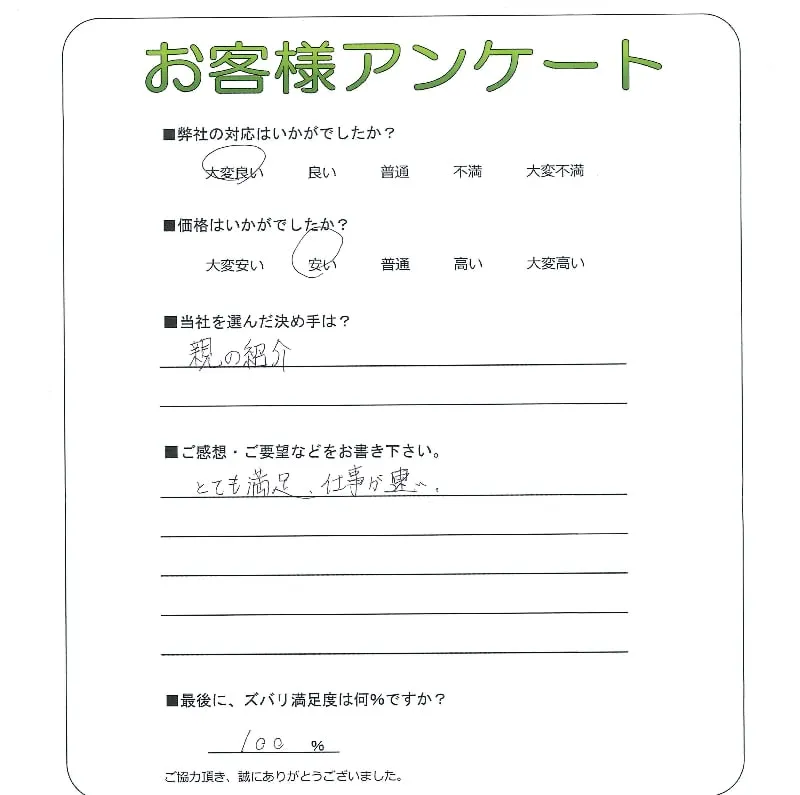 お客様アンケート
■弊社の対応はいかがでしたか？
大変良い 良い 普通 不満 大変不満
■価格はいかがでしたか？
大変安い 安い 普通 高い 大変高い
■当社を選んだ決め手は？
親の紹介
■ご感想・ご要望などをお書き下さい。
とても満足、仕事が速い。
■最後に、ズバリ満足度は何%ですか？
100 %
ご協力頂き、誠にありがとうございました。